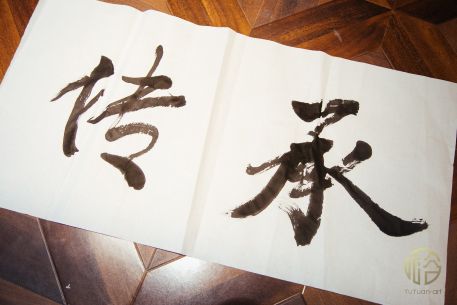 传承
TuTuan-art